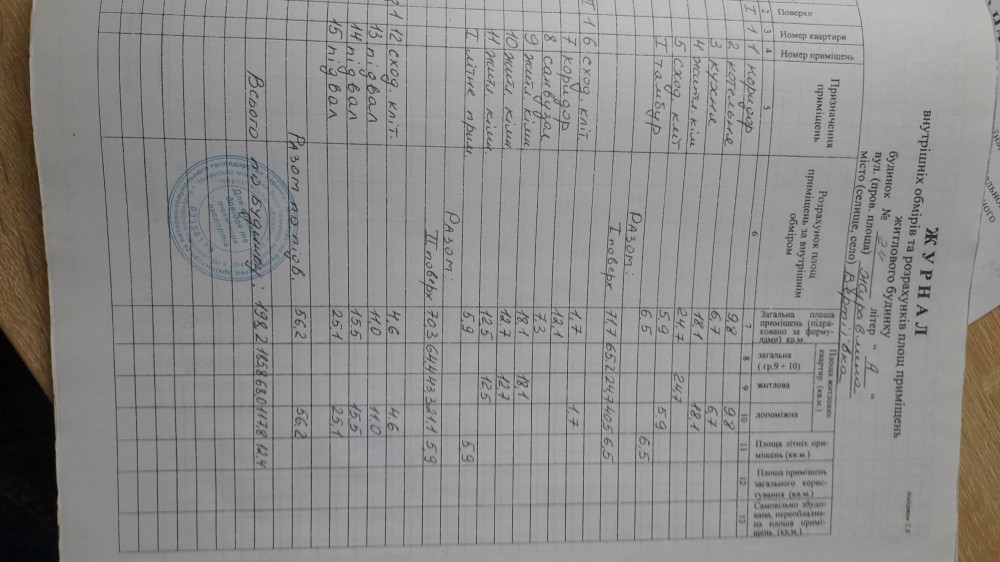 Додаток 2.6
ЖУРНАЛ
внутрішніх обмірів та розрахунків площ приміщень
житлового будинку
будинок № 24 літер " А "
вул. (пров. площа) Журавлина
місто (селище, село) Вертіївка
Поверхи
Номер квартири
Номер приміщень
Призначення приміщень
Розрахунок площ приміщень за внутрішнім обміром
Загальна площа приміщень (підраховано за формулами) кв.м.
Площа житлових квартир (кв.м.)
загальна (гр.9 + 10)
житлова
допоміжна
Площа літніх приміщень (кв.м.)
Площа приміщень загального користування (кв.м.)
Самовільно збудована, переобладнана площа приміщень (кв.м.)
2 3 4 5 6 7 8 9 10 11 12 13
I 1 1 коридор 9,8 9,8
2 котельня 6,7 6,7
3 кухня 18,1 18,1
4 житл кім 24,7 24,7
5 сход. кліт 5,9 5,9
I тамбур 6,5 6,5
Разом:
I поверх 71,7 65,2 24,7 40,5 6,5
II 1 6 сход. кліт
7 коридор 1,7 1,7
8 санвузол 12,1
9 житл кімн 7,3
10 житл кімн 18,1 18,1
11 житл кімн. 12,7 12,7
I літнє прим. 12,5 12,5
5,9 5,9
Разом:
II поверх 70,3 64,4 43,3 21,1 5,9
1 12 сход. кліт. 4,6 4,6
13 підвал 11,0 11,0
14 підвал 15,5 15,5
15 підвал 25,1 25,1
Разом по підв. 56,2 56,2
Всього по будинку: 198,2 185,8 68,0 117,8 12,4